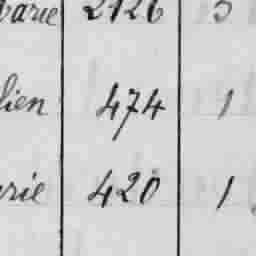 varie 2126 5
lien 474 1
rie 420 1